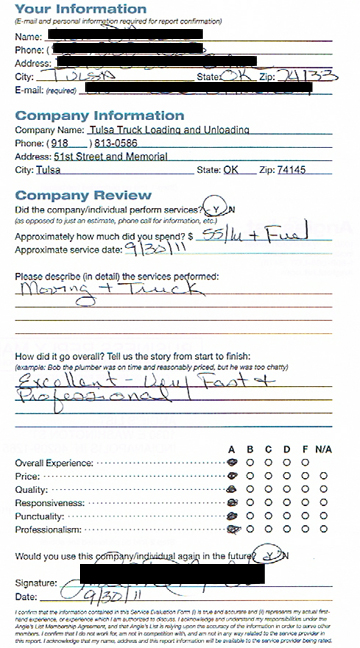 Your Information
(E-mail and personal information required for report confirmation)
Name:
Phone: (
Address:
City: Tulsa State: OK Zip: 74133
E-mail: (required)
Company Information
Company Name: Tulsa Truck Loading and Unloading
Phone: (918 ) 813-0586
Address: 51st Street and Memorial
City: Tulsa State: OK Zip: 74145
Company Review
Did the company/individual perform services? Y N
(as opposed to just an estimate, phone call for information, etc.)
Approximately how much did you spend? $ 55/hr + Fuel
Approximate service date: 9/30/11
Please describe (in detail) the services performed:
Moving + Truck
How did it go overall? Tell us the story from start to finish:
(example: Bob the plumber was on time and reasonably priced, but he was too chatty)
Excellent - Very Fast +
Professional!
A B C D F N/A
Overall Experience:
Price:
Quality:
Responsiveness:
Punctuality:
Professionalism:
Would you use this company/individual again in the future? Y N
Signature:
Date: 9/30/11
I confirm that the information contained in this Service Evaluation Form (i) is true and accurate and (ii) represents my actual first-
hand experience, or experience which I am authorized to discuss. I acknowledge and understand my responsibilities under the
Angie's List Membership Agreement, and that Angie's List is relying upon the accuracy of the information in order to serve other
members. I confirm that I do not work for, am not in competition with, and am not in any way related to the service provider in
this report. I acknowledge that my name, address and this report information will be available to the service provider being rated.